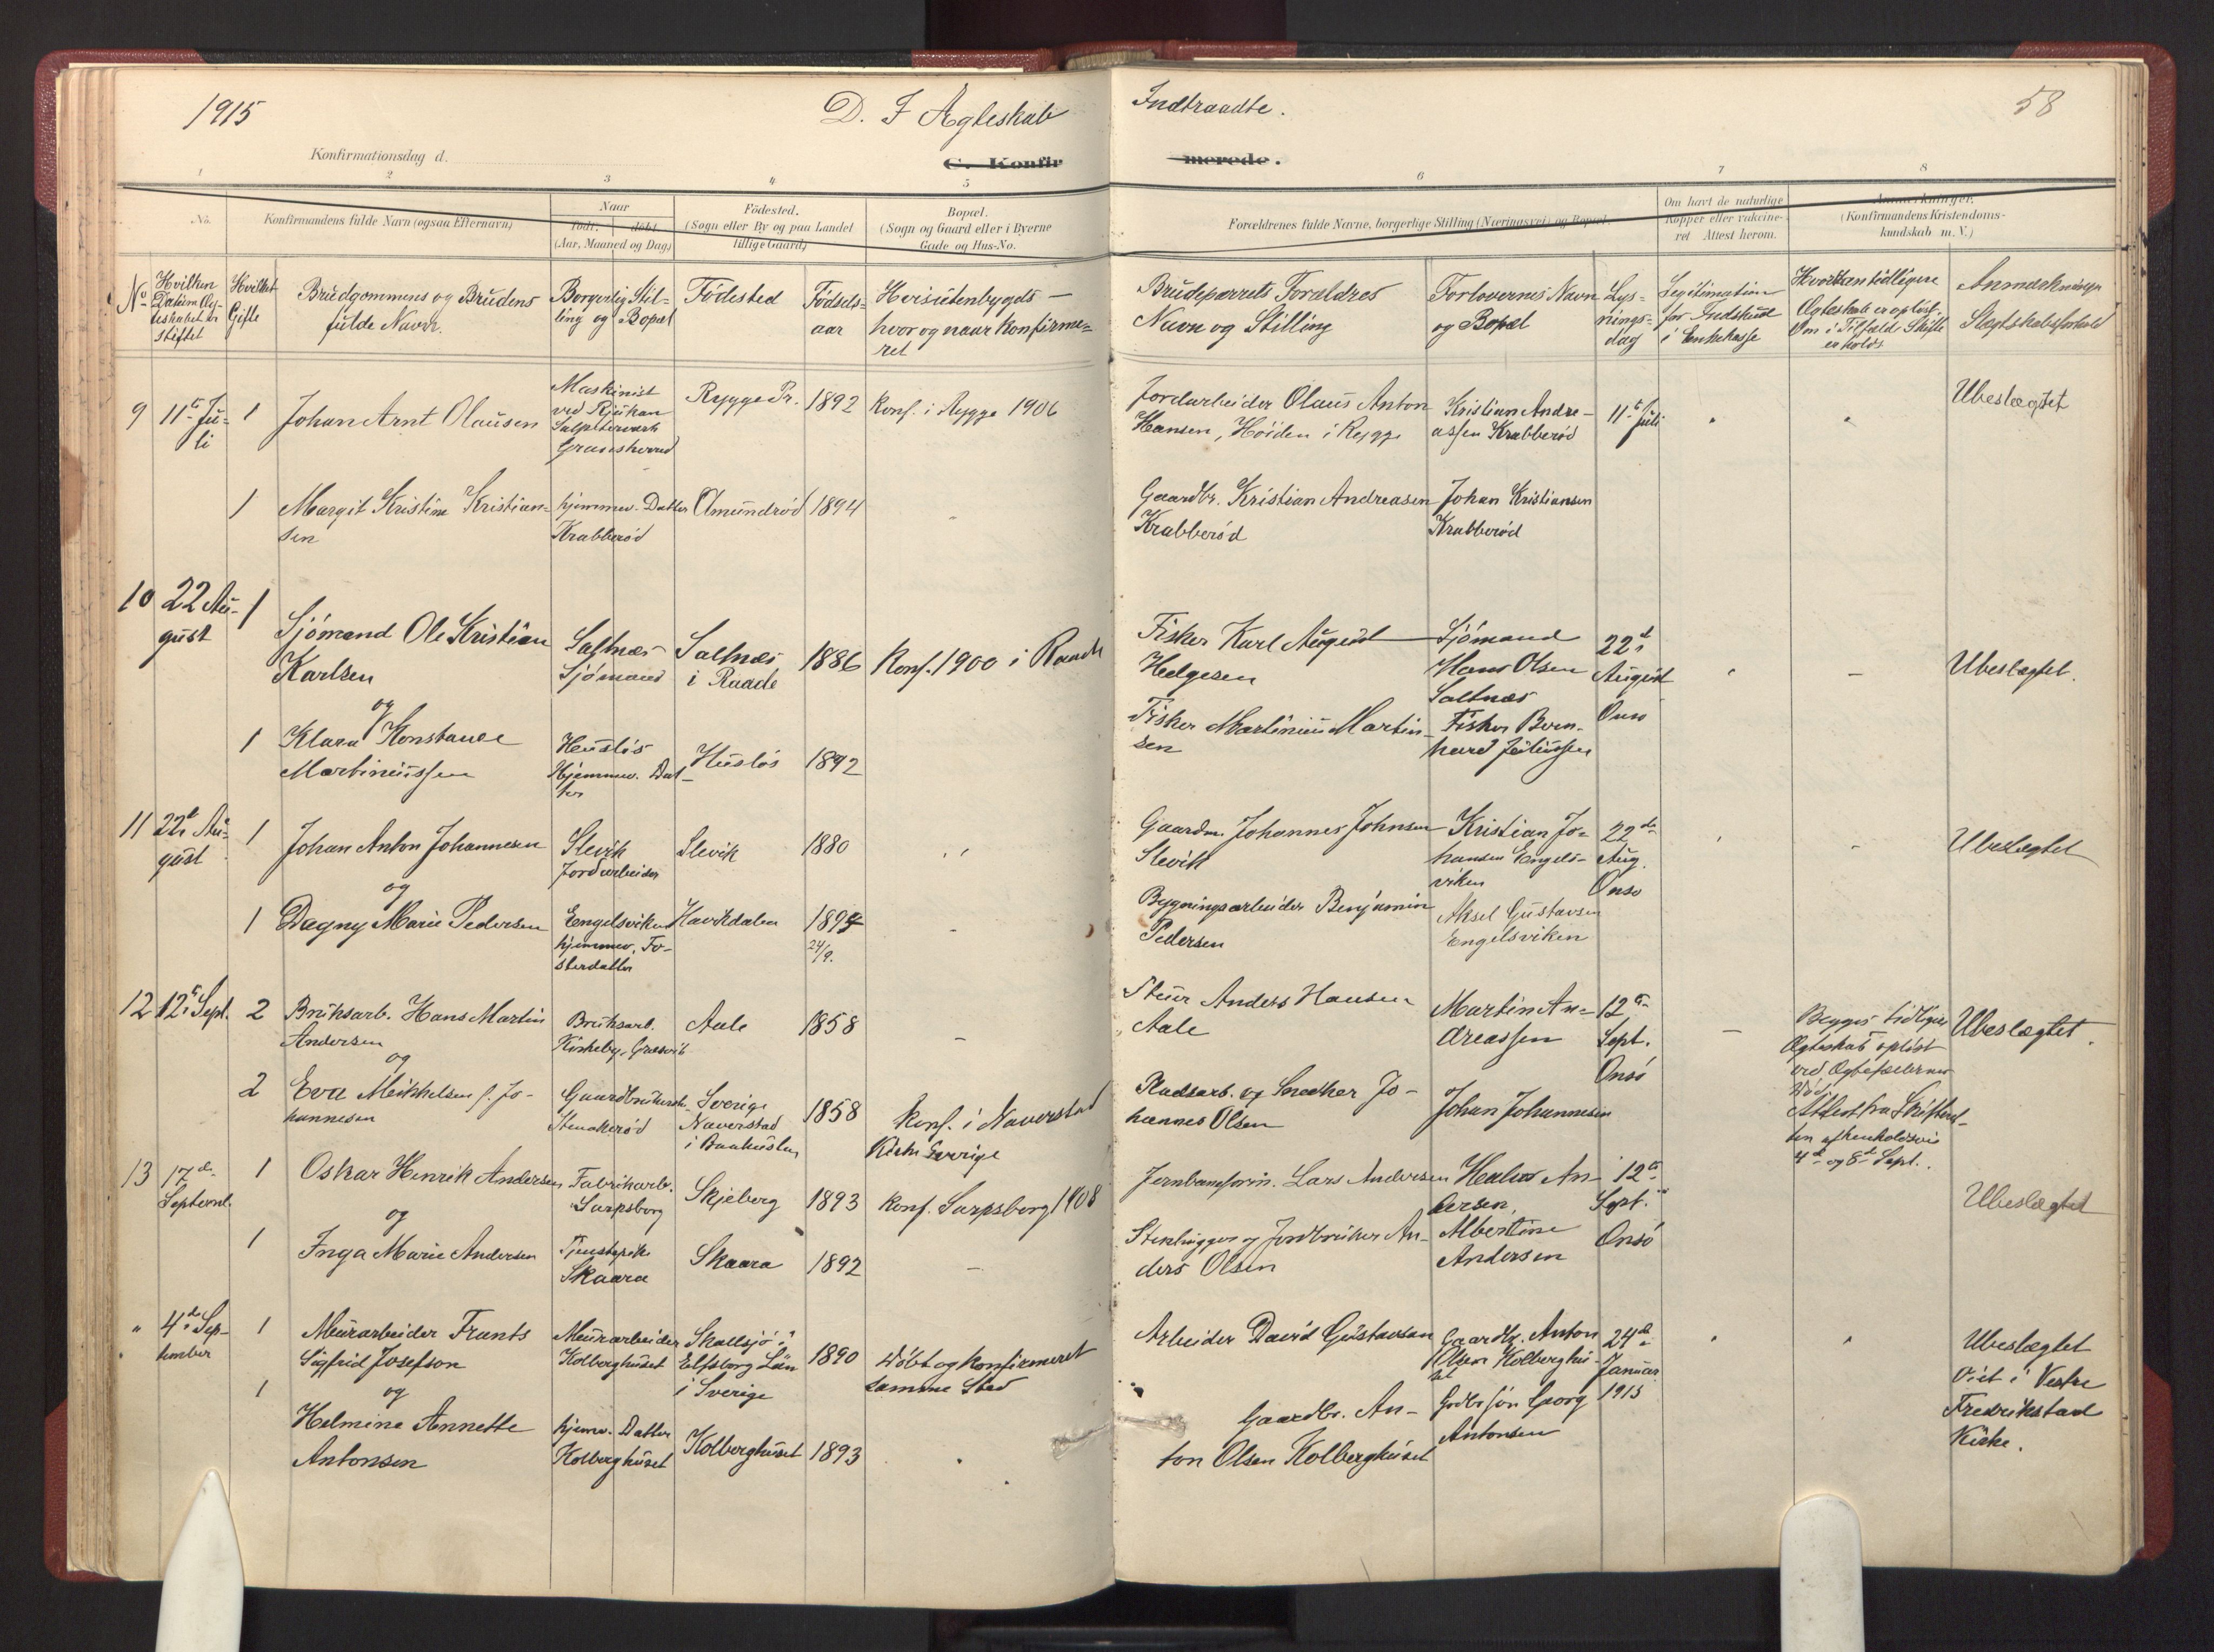 1915
D. I Ægteskab Indtraadte.
58
Konfirmationsdag d.
C. Konfirmerede.
1 2 3 4 5 6 7 8
No.
Konfirmandens fulde Navn (ogsaa Efternavn)
Naar
födt. döbt.
(Aar, Maaned og Dag)
Födested.
(Sogn eller By og paa Landet
tillige Gaard)
Bopæl.
(Sogn og Gaard eller i Byerne
Gade og Hus-No.
Forældrenes fulde Navne, borgerlige Stilling (Næringsvei) og Bopæl.
Om havt de naturlige
Kopper eller vakcine-
ret Attest herom.
Anmærkninger,
(Konfirmandens Kristendoms-
kundskab m. V.)
No
Hvilken
Datum Æg-
teskabet er
stiftet
Hvilket
Gifte
Brudgommens og Brudens
fulde Navn.
Borgerlig Stil-
ling og Bopæl
Födested
Födsels-
aar
Hvis utenbygds —
hvor og naar konfirme-
ret
Brudeparrets Forældres
Navn og Stilling
Forlovernes Navn
og Bopæl
Lys-
nings-
dag
Legitimation
for Indskud
i Enkekasse
Hvordan tidligere
Ægteskab er oplöst.
Om i Tilfælde Skifte
er holdt
Anmærkninger
Slægtskabsforhold
9
11te Ju-
li
1
Johan Arnt Olausen
Maskinist
ved Rjukan
Salpeterverk
Gransherred
Rygge Pr.
1892
Konf. i Rygge 1906
Jordarbeider Olaus Anton
Hansen, Höiden i Rygge
Kristian Andre-
assen Krabberöd
11te Juli
Ubeslægtet
1
Margit Kristine Kristian-
sen
hjemmev. Datter
Krabberöd
Omundröd
1894
Gaardbr. Kristian Andreasen
Krabberöd
Johan Kristiansen
Krabberöd
10
22 Au-
gust
1
Sjömand Ole Kristian
Karlsen
og
Saltnæs
Sjömand
Saltnæs
i Raade
1886
Konf. 1900 i Raade
Fisker Karl August
Helgesen
Sjömand
Hans Olsen
Saltnæs
22de
August
Onsö
Ubeslægtet.
1
Klara Konstance
Martiniussen
Huslös
Hjemmev. Dat-
ter
Huslös
1892
Fisker Martinius Martin-
sen
Fisker Bern-
hard Juliussen
11
22de Au-
gust
1
Johan Anton Johannesen
og
Slevik
Jordarbeider
Slevik
1880
Gaardm. Johannes Johnsen
Slevik
Kristian Jo-
hansen Engels-
viken
22de
Aug.
Onsö
Ubeslægtet
1
Dagny Marie Pedersen
Engelsviken
hjemmev. Fo-
sterdatter
Haukdalen
1894
24/9.
Bygningsarbeider Benjamin
Pedersen
Aksel Gustavsen
Engelsviken
12
12te Sept.
2
Bruksarb. Hans Martin
Andersen
og
Bruksarb.
Kirkeby, Græsvik
Aale
1858
Stuer Anders Hansen
Aale
Martin An-
dreassen
12te
Sept.
Onsö
Begges tidligere
Ægteskab oplöst
ved Ægtefællernes
Död.
Attest fra Skifteret-
ten af henholdsvis
4de og 8de Sept.
Ubeslægtet.
2
Eva Mikkelsen f. Jo-
hannesen
Gaardbrukersk.
Stenakeröd
Sverige
Naverstad
i Baahuslen
1858
Konf. i Naverstad
Kirke Sverige
Pladsarb. og Snedker Jo-
hannes Olsen
Johan Johannesen
13
17de
Septemb.
1
Oskar Henrik Andersen
og
Fabrikarb.
Sarpsborg
Skjeberg
1893
Konf. Sarpsborg 1908
Jernbaneform. Lars Andersen
An-
dersen,
12te
Sept.
Onsö
Ubeslægtet
1
Inga Marie Andersen
Tjenestepike
Skaara
Skaara
1892
Stenhugger og Jordbruker An-
ders Olsen
Albertine
Andersen
"
4de Sep-
tember
1
Murarbeider Frants
Sigfrid Josefson
og
Murarbeider
Kolberghuset
Skallsjö i
Elfsborg Län
i Sverige
1890
Döbt og konfirmeret
samme Sted
Arbeider David Gustavsson
Gaardbr. Anton
Olsen Kolberghu-
set
24de
Januar
1915
Ubeslægtet
Viet i Vestre
Fredrikstad
Kirke.
1
Helmine Annette
Antonsen
hjemv. Datter
Kolberghuset
Kolberghuset
1893
Gaardbr. An-
ton Olsen Kolberghuset
Gdbr sön Georg
Antonsen